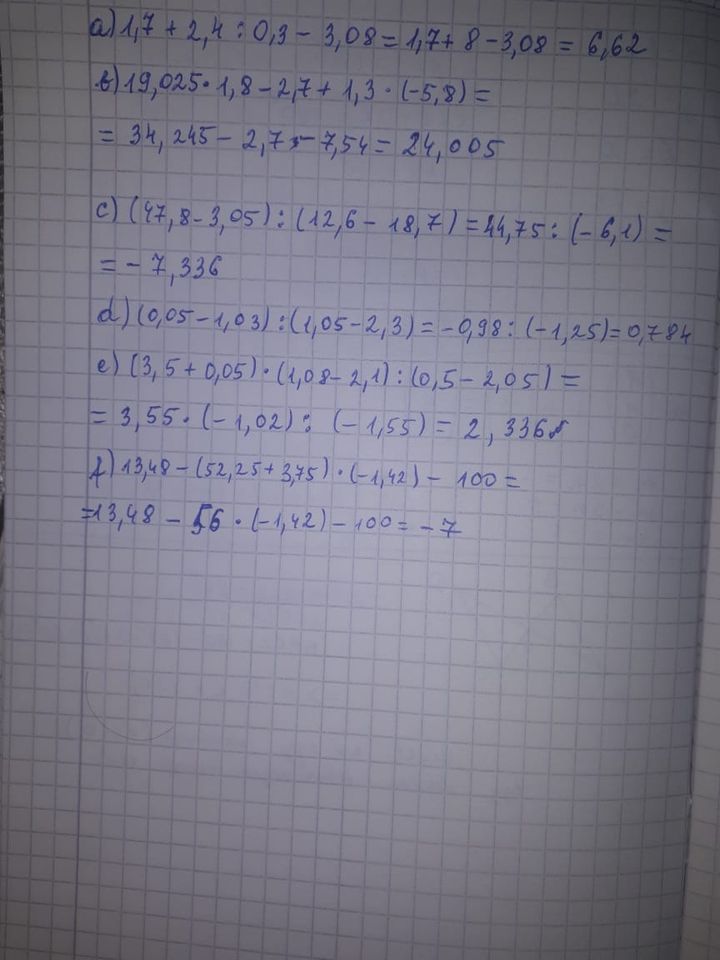 a) 1,7 + 2,4 : 0,3 - 3,08 = 1,7 + 8 - 3,08 = 6,62
b) 19,025 · 1,8 - 2,7 + 1,3 · (-5,8) =
= 34,245 - 2,7 - 7,54 = 24,005
c) (47,8 - 3,05) : (12,6 - 18,7) = 44,75 : (-6,1) =
= - 7,336
d) (0,05 - 1,03) : (1,05 - 2,3) = -0,98 : (-1,25) = 0,784
e) (3,5 + 0,05) · (1,08 - 2,1) : (0,5 - 2,05) =
= 3,55 · (-1,02) : (-1,55) = 2,336
f) 13,48 - (52,25 + 3,75) · (-1,42) - 100 =
= 13,48 - 56 · (-1,42) - 100 = - 7